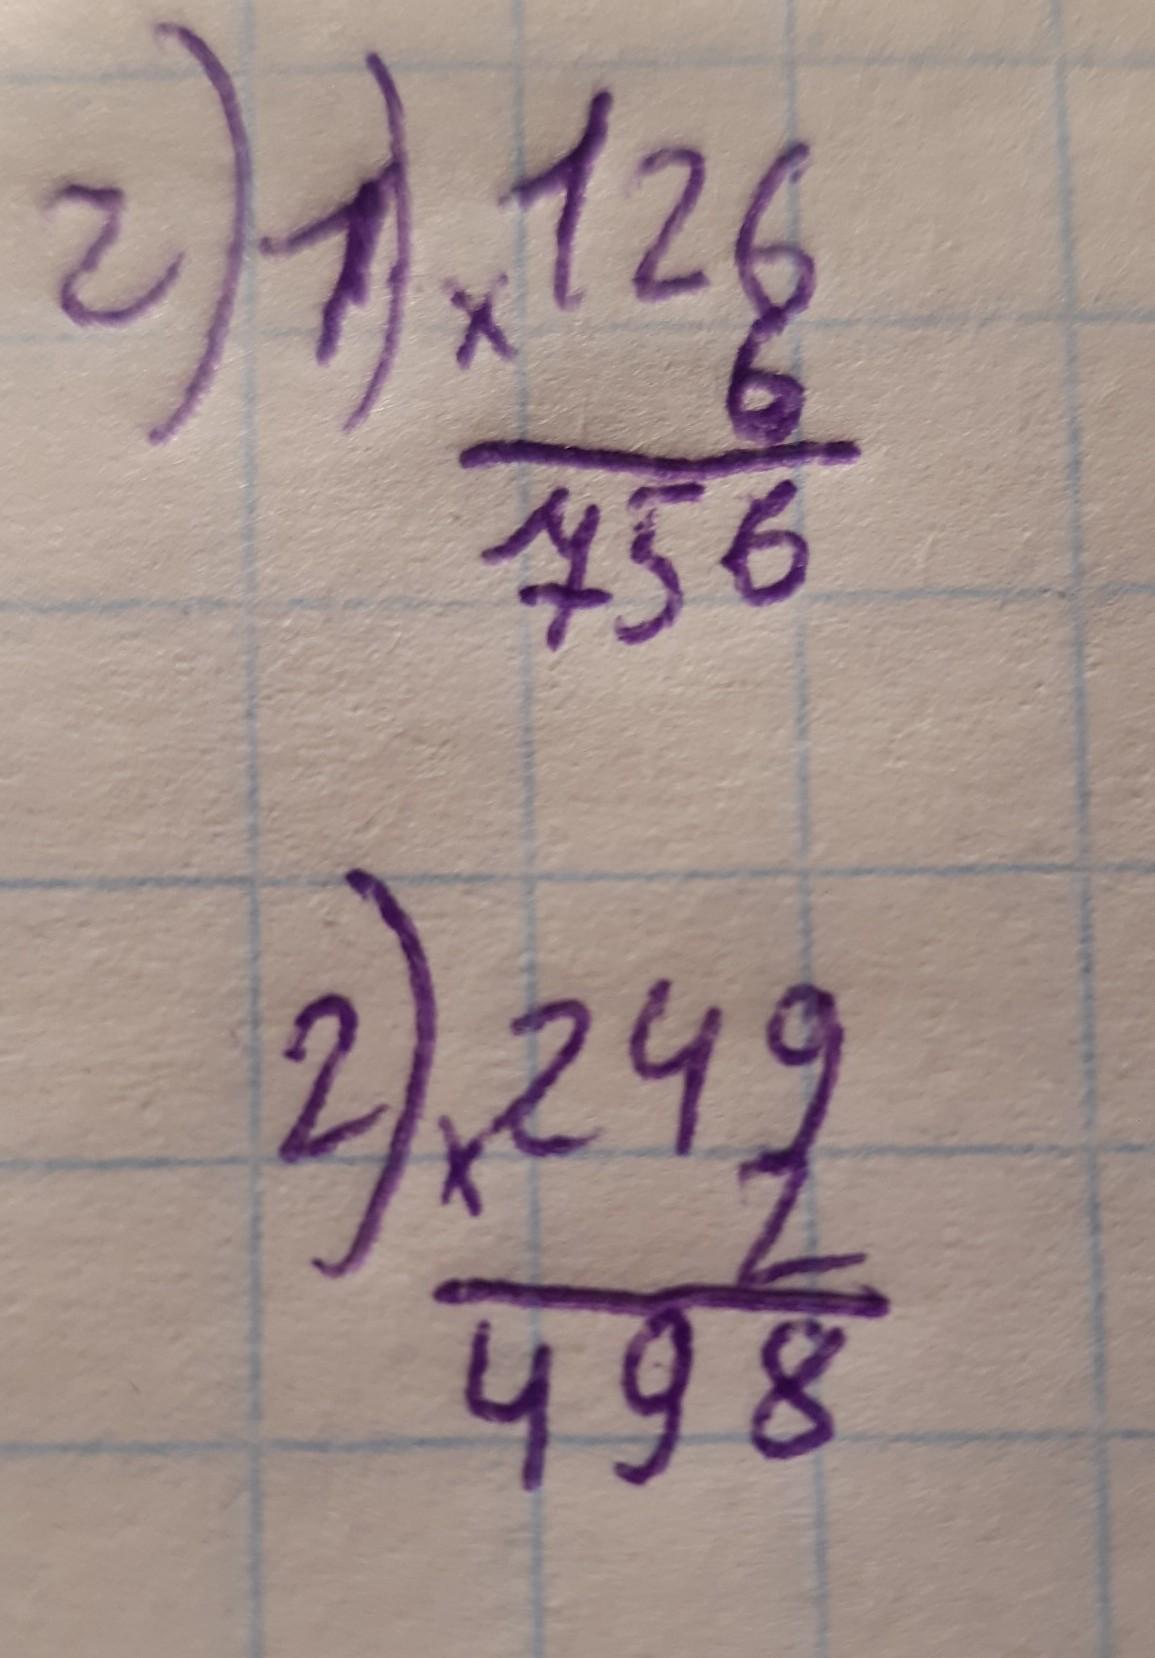 г) 1) 126
× 6
756
2) 249
× 2
498